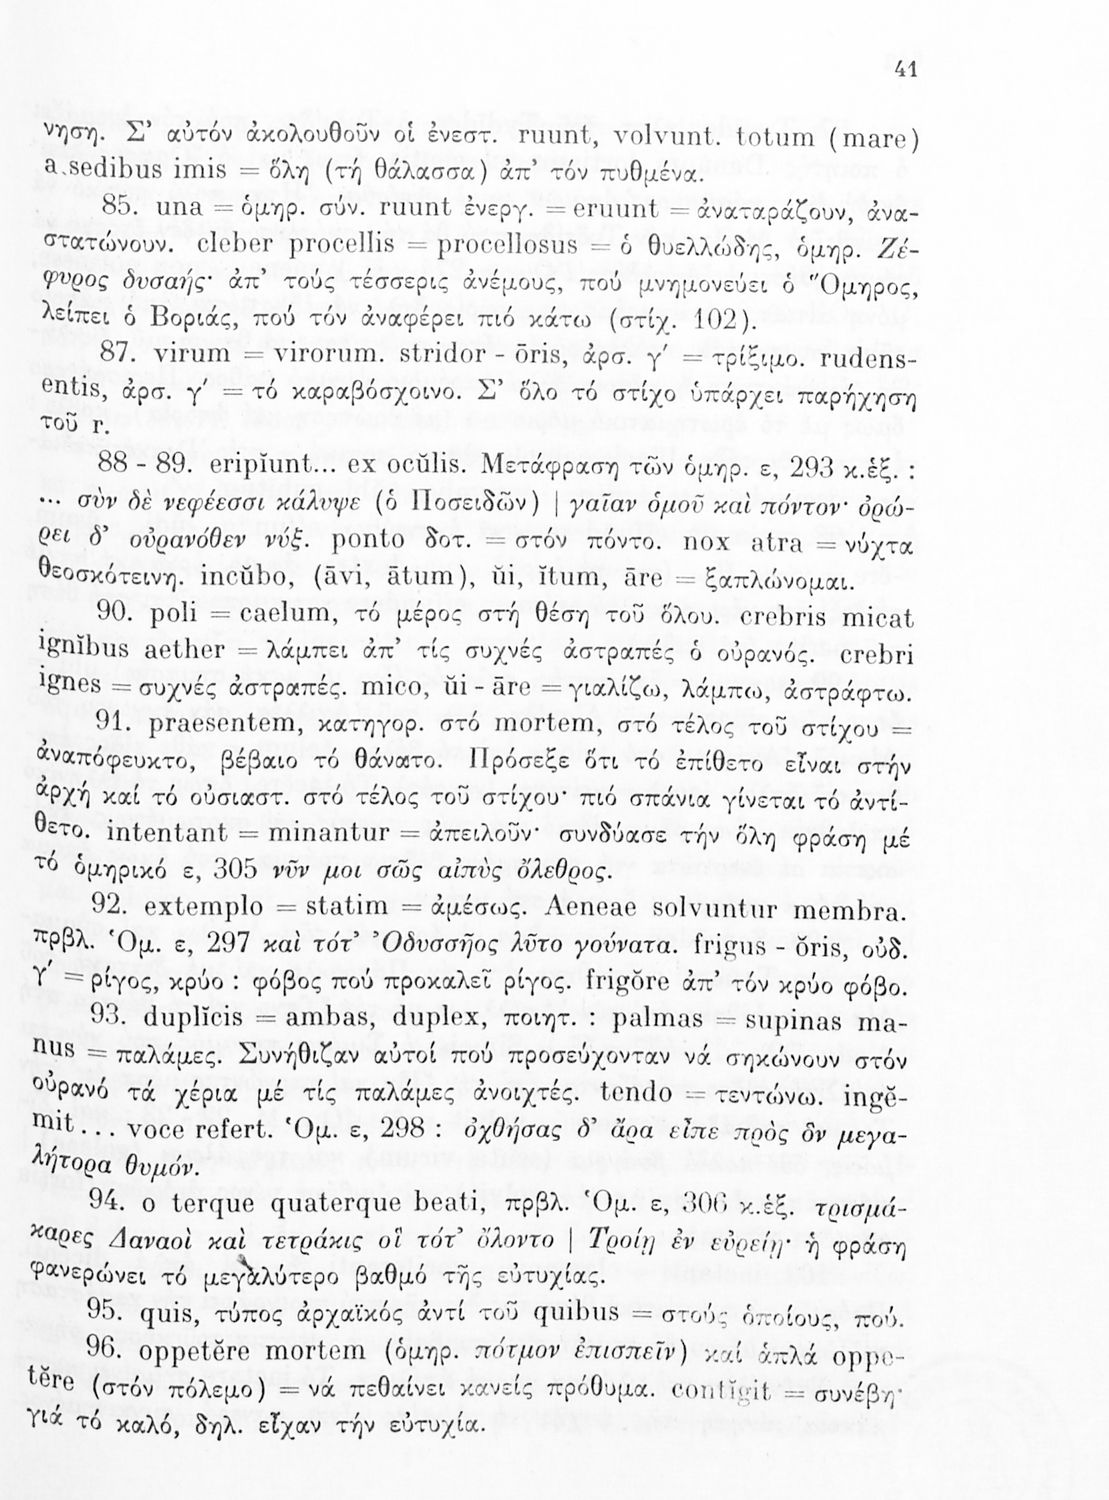 41
νηση. Σ’ αὐτόν ἀκολουθοῦν οἱ ἐνεστ. ruunt, volvunt. totum (mare)
a sedibus imis = ὅλη (τή θάλασσα) ἀπ’ τόν πυθμένα.
85. una = ὁμηρ. σύν. ruunt ἐνεργ. = eruunt = ἀναταράζουν, ἀνα-
στατώνουν. cleber procellis = procellosus = ὁ θυελλώδης, ὁμηρ. Ζέ-
φυρος δυσαής· ἀπ’ τούς τέσσερις ἀνέμους, πού μνημονεύει ὁ Ὅμηρος,
λείπει ὁ Βοριάς, πού τόν ἀναφέρει πιό κάτω (στίχ. 102).
87. virum = virorum. stridor - ōris, ἀρσ. γ΄ = τρίξιμο. rudens-
entis, ἀρσ. γ΄ = τό καραβόσχοινο. Σ’ ὅλο τό στίχο ὑπάρχει παρήχηση
τοῦ r.
88 - 89. eripĭunt... ex ocŭlis. Μετάφραση τῶν ὁμηρ. ε, 293 κ.ἑξ. :
... σὺν δὲ νεφέεσσι κάλυψε (ὁ Ποσειδῶν) | γαῖαν ὁμοῦ καὶ πόντον· ὀρώ-
ρει δ’ οὐρανόθεν νύξ. ponto δοτ. = στόν πόντο. nox atra = νύχτα
θεοσκότεινη. incŭbo, (āvi, ātum), ŭi, ĭtum, āre = ξαπλώνομαι.
90. poli = caelum, τό μέρος στή θέση τοῦ ὅλου. crebris micat
ignĭbus aether = λάμπει ἀπ’ τίς συχνές ἀστραπές ὁ οὐρανός. crebri
ignes = συχνές ἀστραπές. mico, ŭi - āre = γιαλίζω, λάμπω, ἀστράφτω.
91. praesentem, κατηγορ. στό mortem, στό τέλος τοῦ στίχου =
ἀναπόφευκτο, βέβαιο τό θάνατο. Πρόσεξε ὅτι τό ἐπίθετο εἶναι στήν
ἀρχή καί τό οὐσιαστ. στό τέλος τοῦ στίχου· πιό σπάνια γίνεται τό ἀντί-
θετο. intentant = minantur = ἀπειλοῦν· συνδύασε τήν ὅλη φράση μέ
τό ὁμηρικό ε, 305 νῦν μοι σῶς αἰπὺς ὄλεθρος.
92. extemplo = statim = ἀμέσως. Aeneae solvuntur membra.
πρβλ. Ὁμ. ε, 297 καὶ τότ’ Ὀδυσσῆος λῦτο γούνατα. frigus - ŏris, οὐδ.
γ΄ = ρίγος, κρύο : φόβος πού προκαλεῖ ρίγος. frigŏre ἀπ’ τόν κρύο φόβο.
93. duplĭcis = ambas, duplex, ποιητ. : palmas = supinas ma-
nus = παλάμες. Συνήθιζαν αὐτοί πού προσεύχονταν νά σηκώνουν στόν
οὐρανό τά χέρια μέ τίς παλάμες ἀνοιχτές. tendo = τεντώνω. ingĕ-
mit... voce refert. Ὁμ. ε, 298 : ὀχθήσας δ’ ἄρα εἶπε πρὸς ὃν μεγα-
λήτορα θυμόν.
94. o terque quaterque beati, πρβλ. Ὁμ. ε, 306 κ.ἑξ. τρισμά-
καρες Δαναοὶ καὶ τετράκις οἳ τότ’ ὄλοντο | Τροίῃ ἐν εὐρείῃ· ἡ φράση
φανερώνει τό μεγαλύτερο βαθμό τῆς εὐτυχίας.
95. quis, τύπος ἀρχαϊκός ἀντί τοῦ quibus = στούς ὁποίους, πού.
96. oppetĕre mortem (ὁμηρ. πότμον ἐπισπεῖν) καί ἁπλά oppe-
tĕre (στόν πόλεμο) = νά πεθαίνει κανείς πρόθυμα. contĭgit = συνέβη·
γιά τό καλό, δηλ. εἶχαν τήν εὐτυχία.